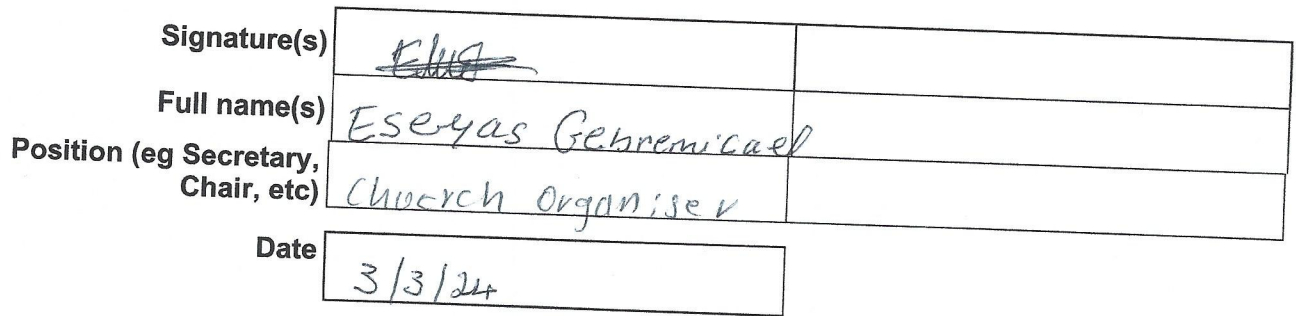 Signature(s)
Full name(s) Eseyas Gebremicael
Position (eg Secretary,
Chair, etc) Chuerch organiser
Date 3/3/24